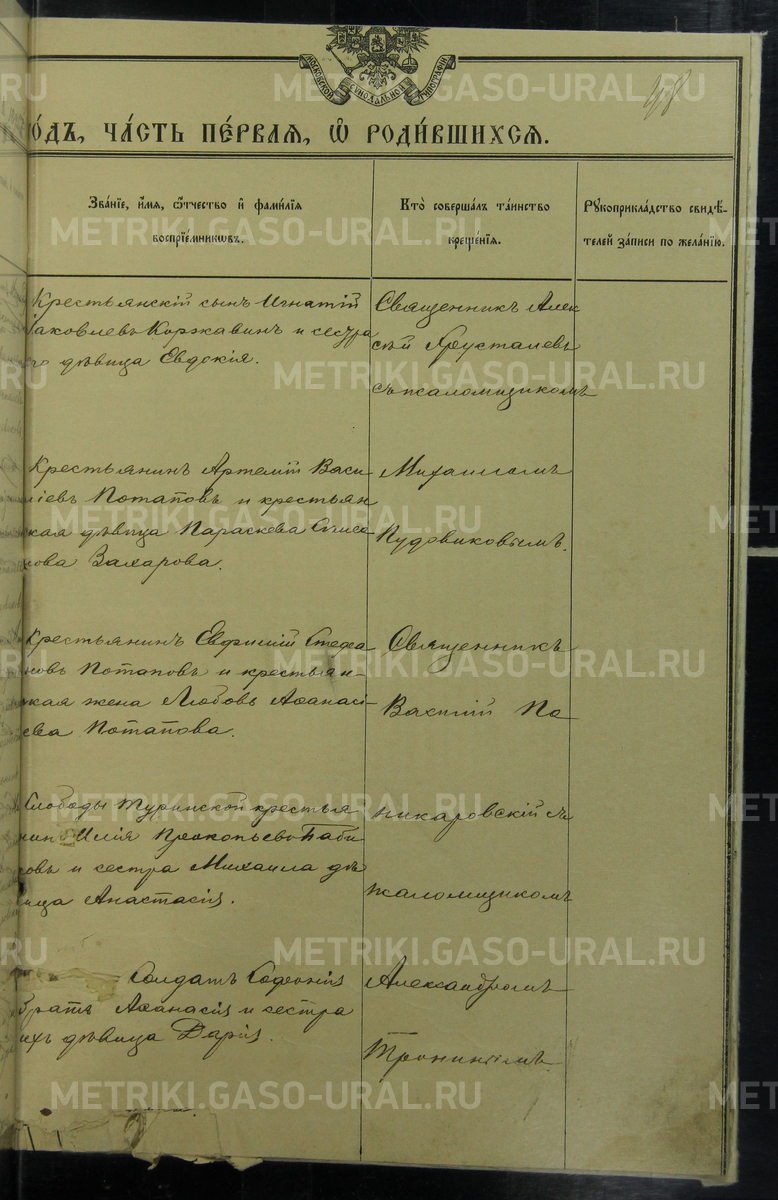 МОСКОВСКОЙ СѴНОДАЛЬНОЙ ТИПОГРАФІИ
98
ОДЪ, ЧАСТЬ ПЕ́РВАЯ, Ѽ РОДИ́ВШИХСЯ.
Зва́нїе, и҆́мя, ѻ҆́тчество и҆ фами́лїя
воспрїе́мникѡвъ.
Кто̀ соверша́лъ та́инство
креще́нїя.
Рꙋкоприкла́дство свидѣ́-
телей за́писи по жела́нїю.
Крестьянскій сынъ Игнатій
Іаковлевъ Коржавинъ и сестра
его дѣвица Евдокія.
Священникъ Алек
сѣй Хрусталевъ
съ псаломщикомъ
Крестьянинъ Артемій Васи
ліевъ Потаповъ и крестьян
ская дѣвица Параскева
нова Захарова.
Михаиломъ
Пудовиковымъ.
Крестьянинъ Евфимій Стефа
новъ Потаповъ и крестьян-
ская жена Любовь Аѳанасі-
ева Потапова.
Священникъ
Василій По
Слободы Туринской крестья
нинъ Илія Прокопьевъ Баби
ровъ и сестра Михаила дѣ
вица Анастасія.
никаровскій съ
псаломщикомъ
Солдатъ Софонія
Братъ Аѳанасія и сестра
ихъ дѣвица Дарія.
Александромъ
Тронинымъ.
METRIKI.GASO-URAL.RU